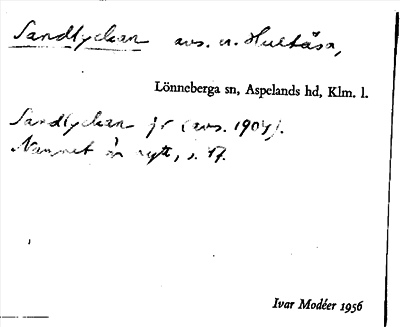 Sandlyckan avs. u. Hultåsa,
Lönneberga sn, Aspelands hd, Klm. l.
Sandlyckan jr (avs. 1904).
Namnet är nytt, s. 17.
Ivar Modéer 1956